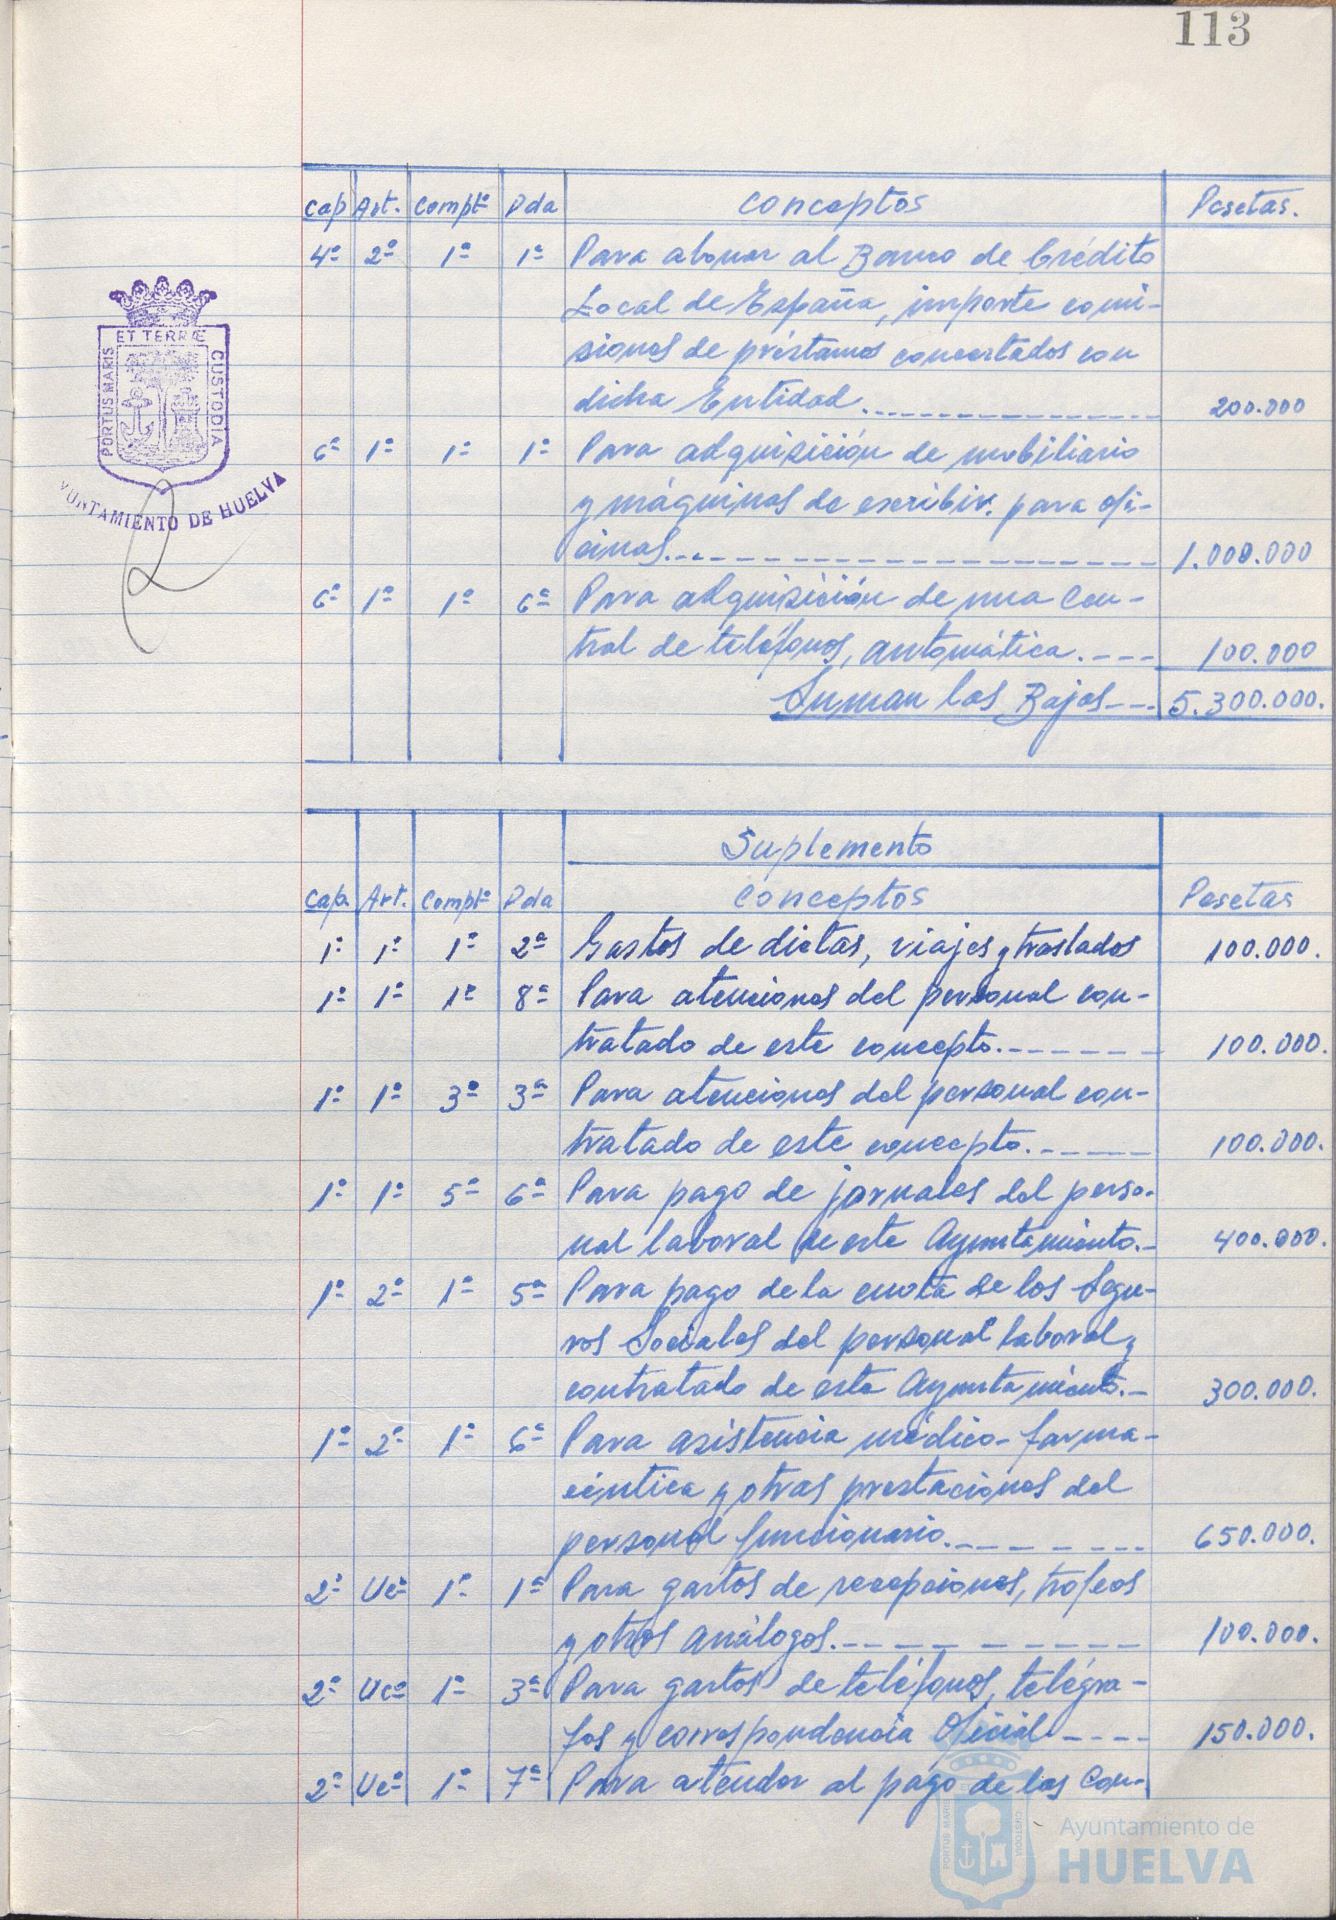 113
Cap Art. Compto Pda Conceptos Pesetas.
4º 2º 1º 1ª Para abonar al Banco de Crédito
Local de España, importe comi-
siones de préstamos concertados con
dicha Entidad. 200.000
6º 1º 1º 1ª Para adquisición de mobiliario
y máquinas de escribir. para ofi-
cinas. 1.000.000
6º 1º 1º 6ª Para adquisición de una Cen-
tral de teléfonos, automática. 100.000
Suman las Bajas 5.300.000.
ET TERRÆ
PORTUS MARIS
CUSTODIA
YUNTAMIENTO DE HUELVA
Suplemento
Cap. Art. Compto Pda Conceptos Pesetas
1º 1º 1º 2ª Gastos de dietas, viajes y traslados 100.000.
1º 1º 1º 8ª Para atenciones del personal con-
tratado de este concepto. 100.000.
1º 1º 3º 3ª Para atenciones del personal con-
tratado de este concepto. 100.000.
1º 1º 5º 6ª Para pago de jornales del perso-
nal laboral de este Ayuntamiento. 400.000.
1º 2º 1º 5ª Para pago de la cuota de los Segu-
ros Sociales del personal laboral y
contratado de este Ayuntamiento. 300.000.
1º 2º 1º 6ª Para asistencia médico-farma-
céutica y otras prestaciones del
personal funcionario. 650.000.
2º Ucº 1º 1ª Para gastos de recepciones, trofeos
y otros análogos. 100.000.
2º Ucº 1º 3ª Para gastos de teléfonos, telégra-
fos y correspondencia Oficial 150.000.
2º Ucº 1º 7ª Para atender al pago de las Con-
PORTUS MARIS
CUSTODIA
Ayuntamiento de
HUELVA